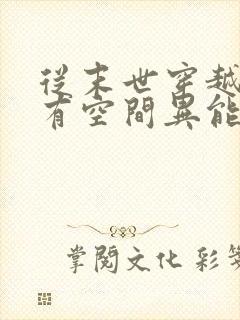 從末世穿越
有空間異能
掌閱文化 彩